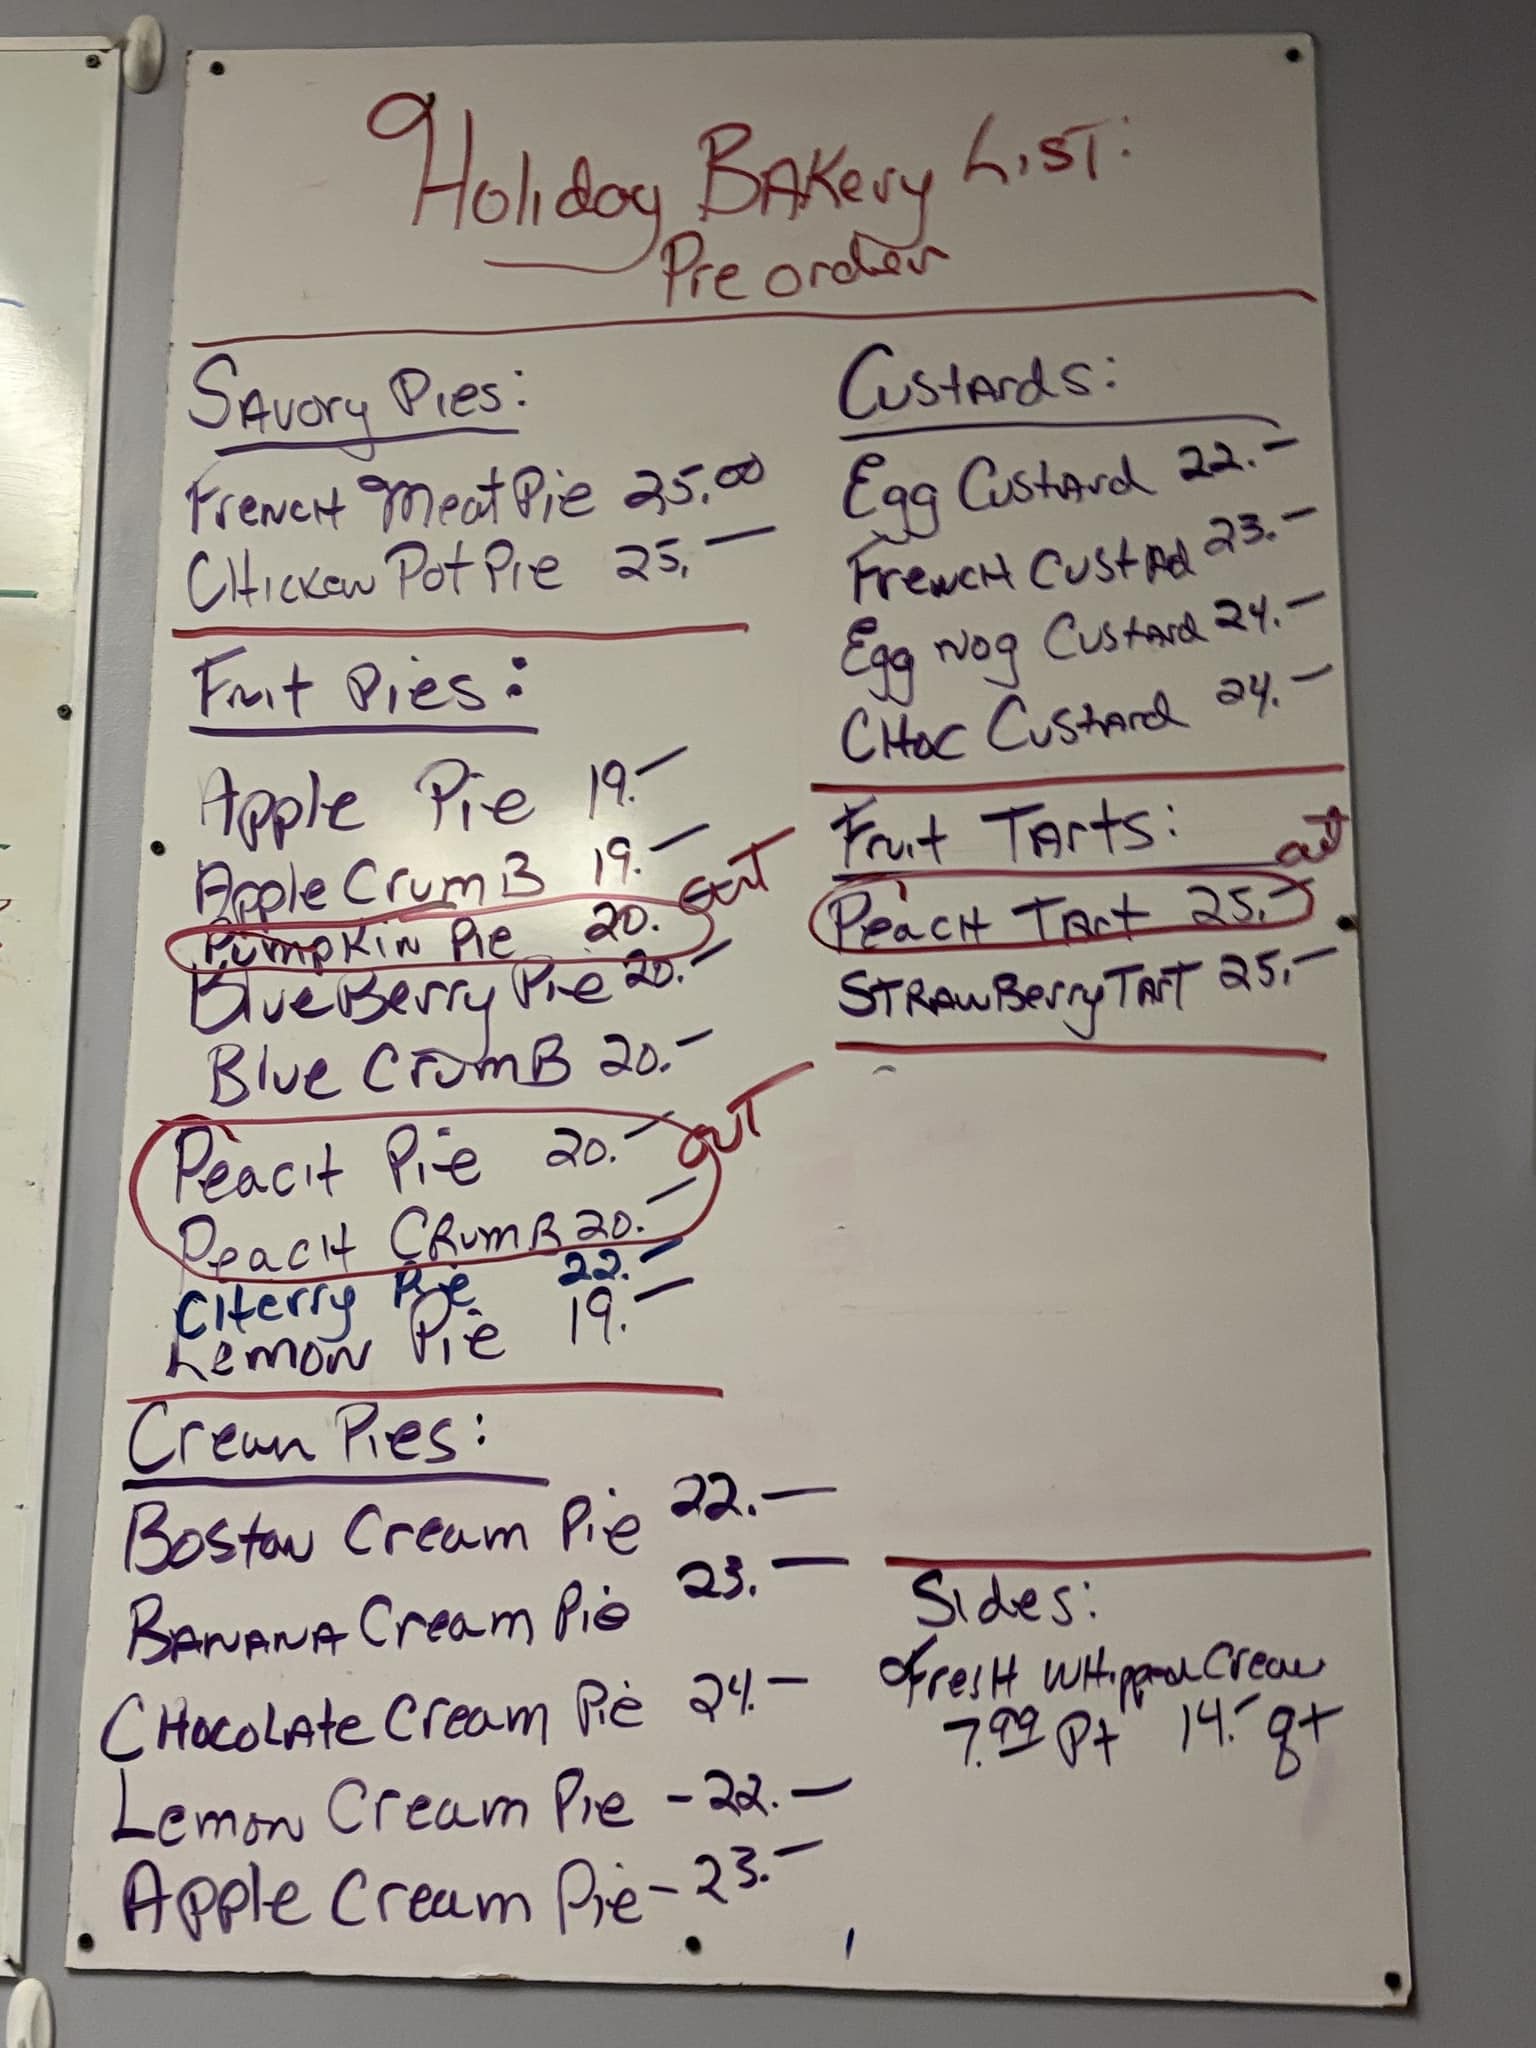 Holiday Bakery List:
Pre order
Savory Pies:
French Meat Pie 25.00
Chicken Pot Pie 25.—
Fruit Pies:
Apple Pie 19.—
Apple Crumb 19.—
Pumpkin Pie 20. out
BlueBerry Pie 20.—
Blue Crumb 20.—
Peach Pie 20.— out
Peach Crumb 20.—
Cherry Pie 22.—
Lemon Pie 19.—
Cream Pies:
Boston Cream Pie 22.—
Banana Cream Pie 23.—
Chocolate Cream Pie 24.—
Lemon Cream Pie - 22.—
Apple Cream Pie - 23.—
Custards:
Egg Custard 22.—
French Custad 23.—
Egg Nog Custard 24.—
Choc Custard 24.—
Fruit Tarts:
out
Peach Tart 25.—
StrawBerry Tart 25.—
Sides:
Fresh Whipped Cream
7.99 Pt 14.— qt